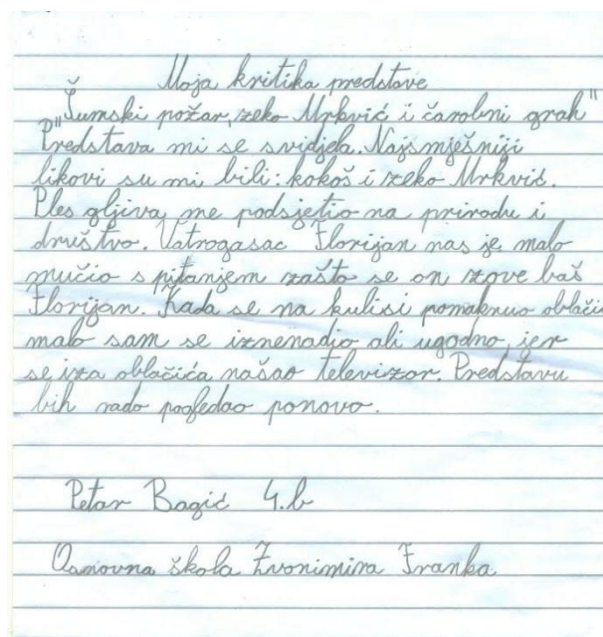 Moja kritika predstave
"Šumski požar, zeko Mrkvić i čarobni grah"
Predstava mi se svidjela. Najsmješniji
likovi su mi bili: kokoš i zeko Mrkvić.
Ples gljiva me podsjetio na prirodu i
društvo. Vatrogasac Florijan nas je malo
mučio s pitanjem zašto se on zove baš
Florijan. Kada se na kulisi pomaknuo oblačić
malo sam se iznenadio ali ugodno, jer
se iza oblačića našao televizor. Predstavu
bih rado pogledao ponovo.
Petar Bagić 4.b
Osnovna škola Zvonimira Franka